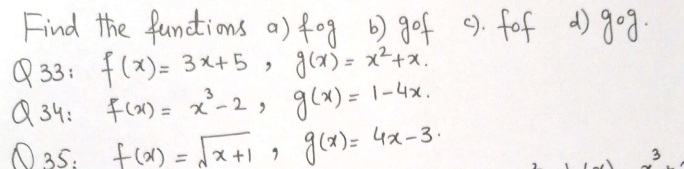 Find the functions a) fog b) gof c). fof d) gog.
Q33: f(x) = 3x+5 , g(x) = x²+x.
Q34: f(x) = x³-2 , g(x) = 1-4x.
Q35: f(x) = √x+1 , g(x) = 4x-3.